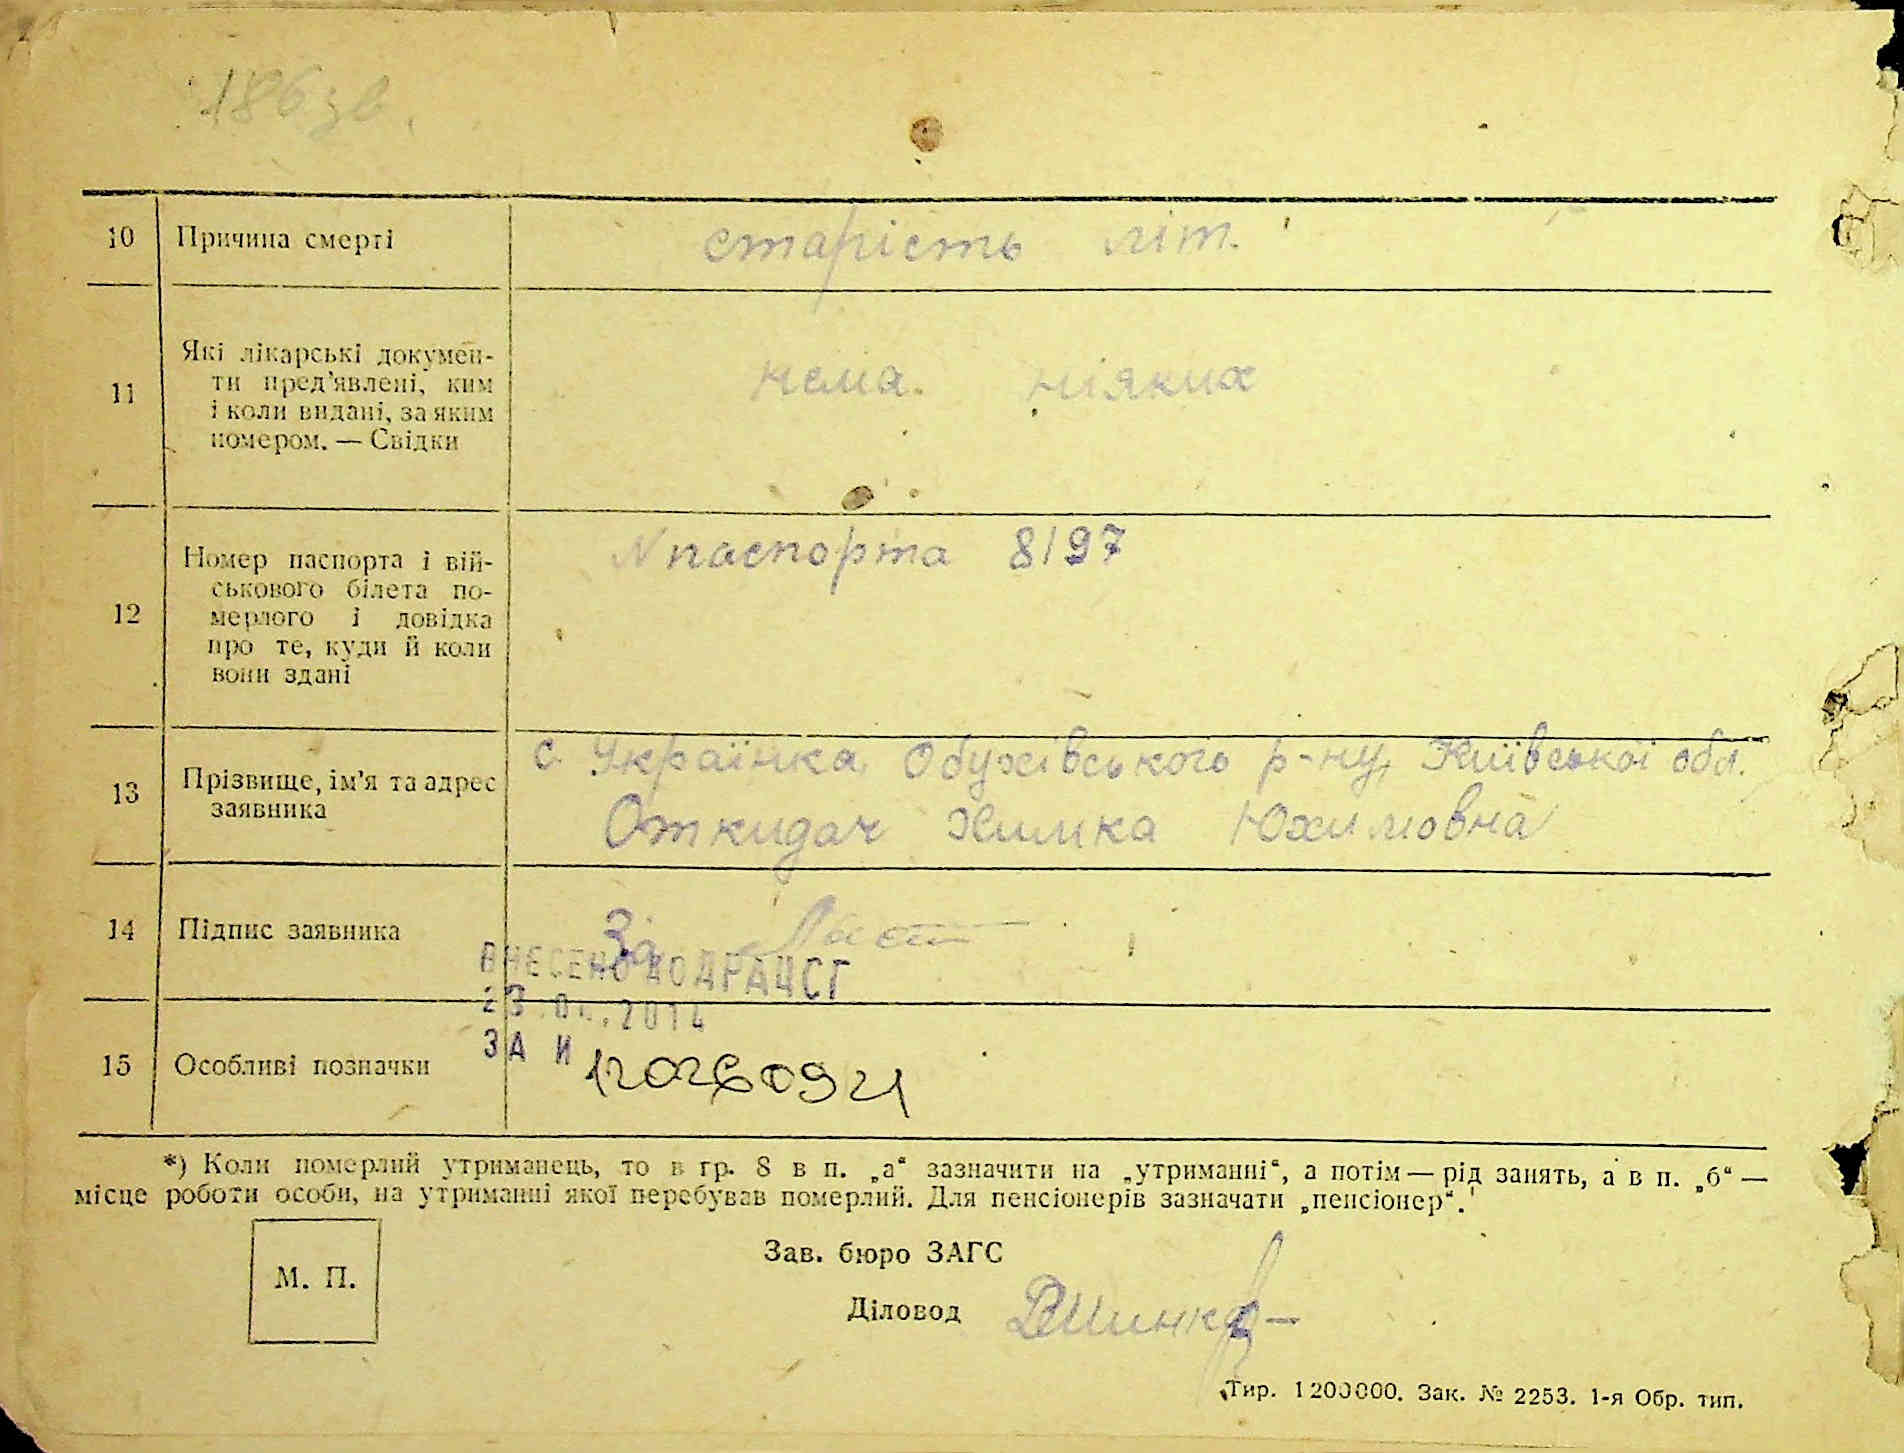 186 зв.
10 Причина смерті старість літ.
11 Які лікарські докумен-
ти пред'явлені, ким
і коли видані, за яким
номером. — Свідки
нема ніяких
12 Номер паспорта і вій-
ськового білета по-
мерлого і довідка
про те, куди й коли
вони здані
N паспорта 8197
13 Прізвище, ім'я та адрес
заявника
с. Українка Обухівського р-ну, Київської обл.
Откидач Химка Юхимовна
14 Підпис заявника За
ВНЕСЕНО ДО ДРАЦСГ
2014
ЗА И
15 Особливі позначки 120260921
*) Коли померлий утриманець, то в гр. 8 в п. „а“ зазначити на „утриманні“, а потім — рід занять, а в п. „б“ —
місце роботи особи, на утриманні якої перебував померлий. Для пенсіонерів зазначати „пенсіонер“.
М. П.
Зав. бюро ЗАГС
Діловод
Тир. 1200000. Зак. № 2253. 1-я Обр. тип.